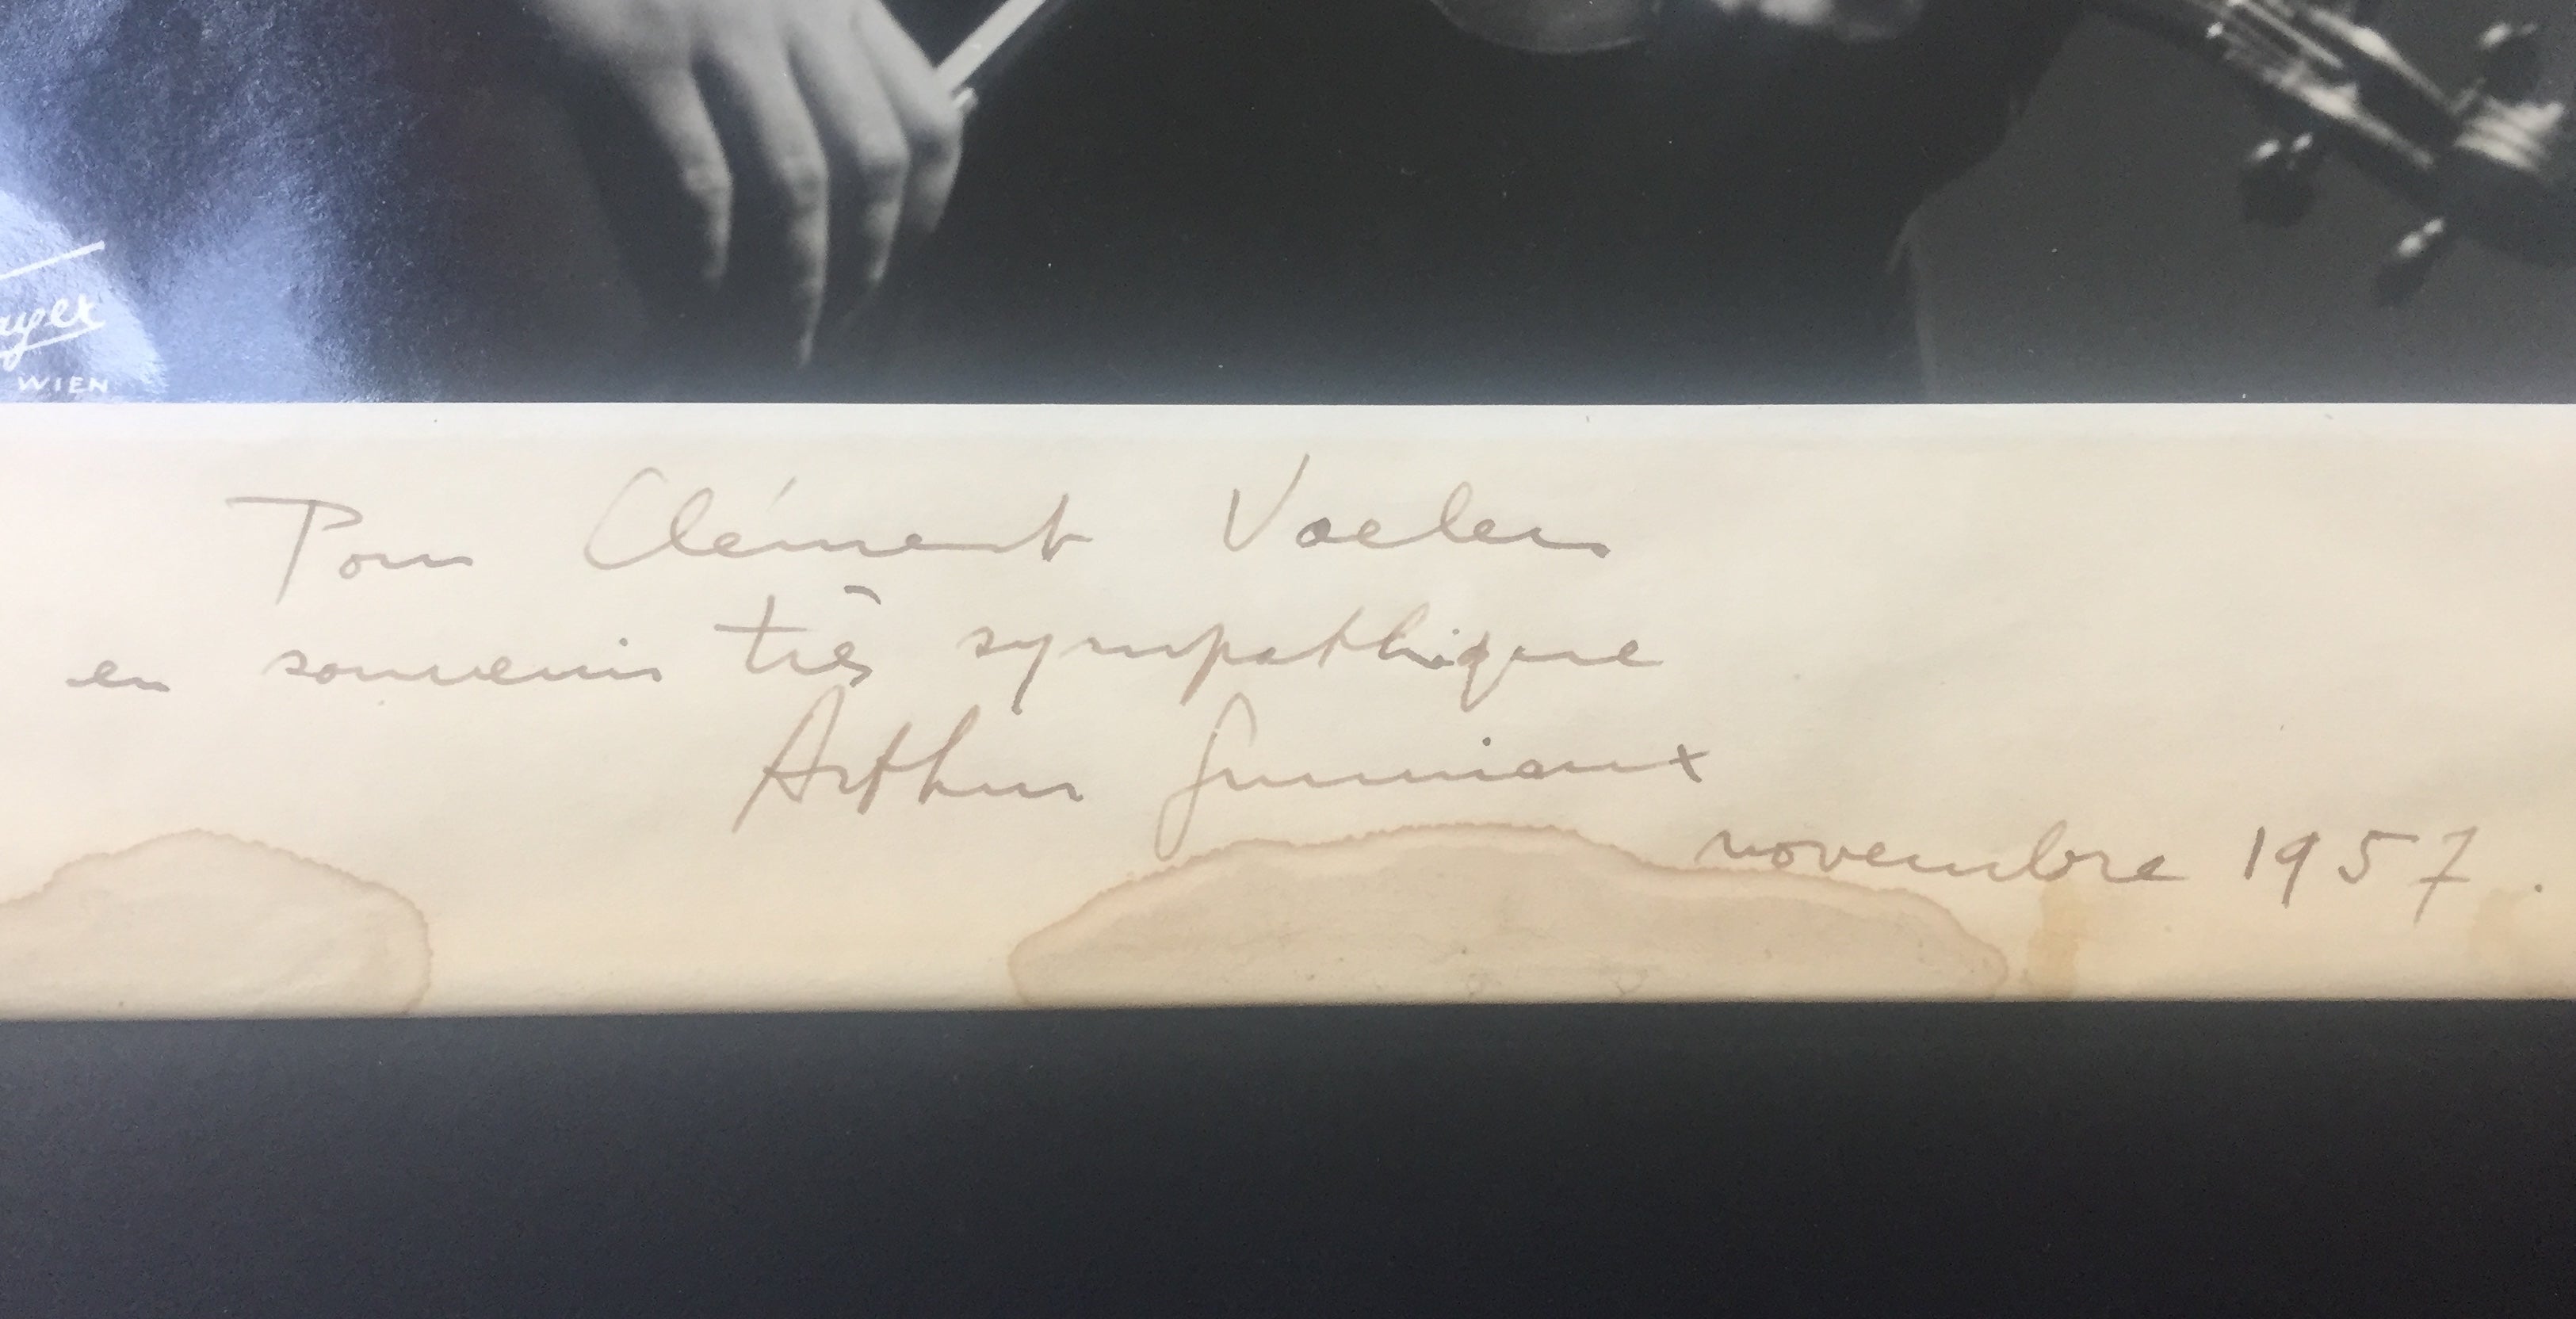 WIEN
Pour Clément Vaelen
en souvenir très sympathique
Arthur Grumiaux
novembre 1957.